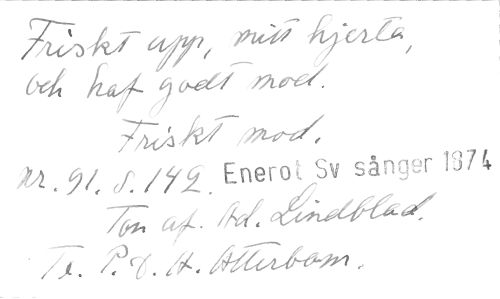 Friskt upp, mitt hjerta,
och haf godt mod.
Friskt mod.
nr. 91. s. 142. Enerot Sv sånger 1874
Ton af. Ad. Lindblad.
Te. P. D. A. Atterbom.